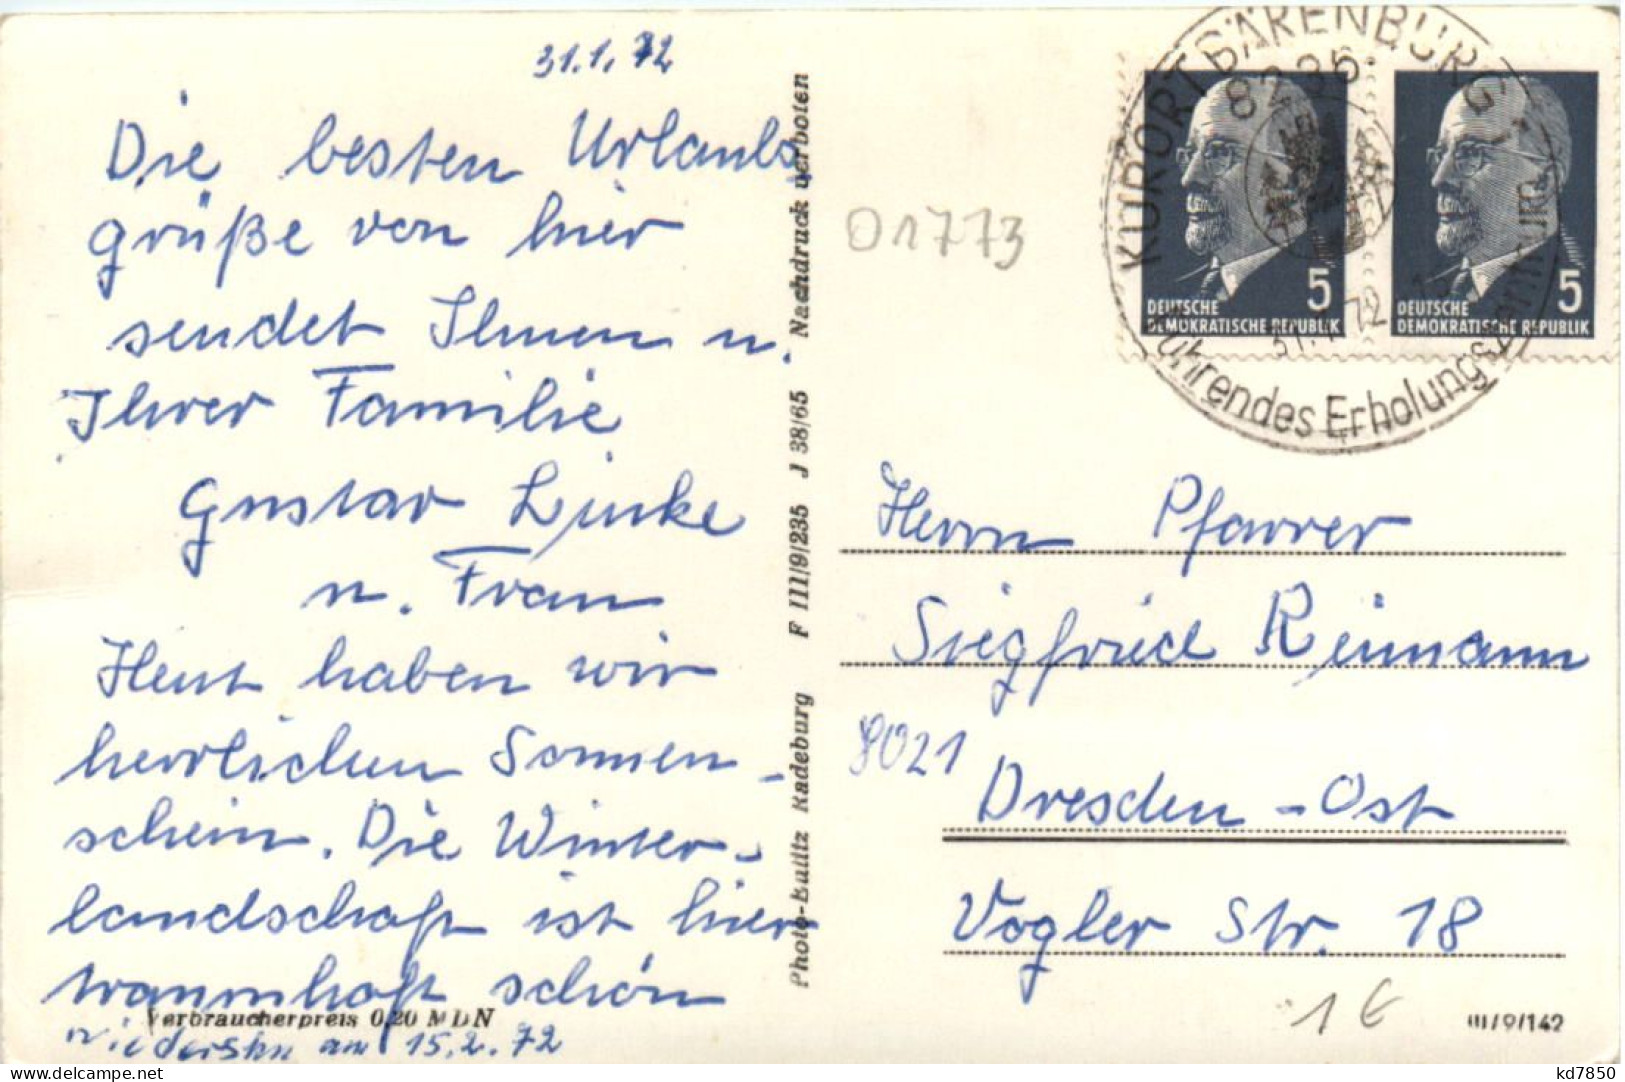 31.1.72
Die besten Urlaubs-
grüße von hier
sendet Ihnen u.
Ihrer Familie
Gustav Linke
u. Frau
Heut haben wir
herrlichen Sonnen-
schein. Die Winter-
landschaft ist hier
traumhaft schön
Verbraucherpreis 0,20 MDN
am 15.2.72
Photo-Kulitz Kadeburg F III/9/235 J 38/65 Nachdruck verboten
01773
KURORT BÄRENBURG
8236
31.1.72
führendes Erholungszentrum
5
DEUTSCHE
DEMOKRATISCHE REPUBLIK
5
DEUTSCHE
DEMOKRATISCHE REPUBLIK
Herrn Pfarrer
Siegfried Reimann
8021
Dresden-Ost
Vogler Str. 18
1 €
III/9/142
kd7850